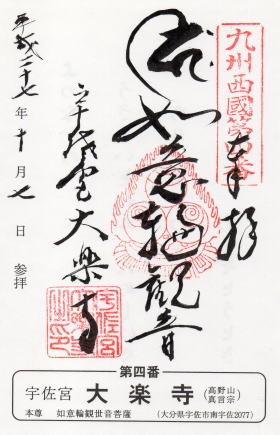 九州西國第四番
奉拝
如意輪觀音
大樂寺
平成二十七年十月七日 参拝
第四番
宇佐宮 大楽寺 (高野山真言宗)
本尊 如意輪観世音菩薩 (大分県宇佐市南宇佐2077)